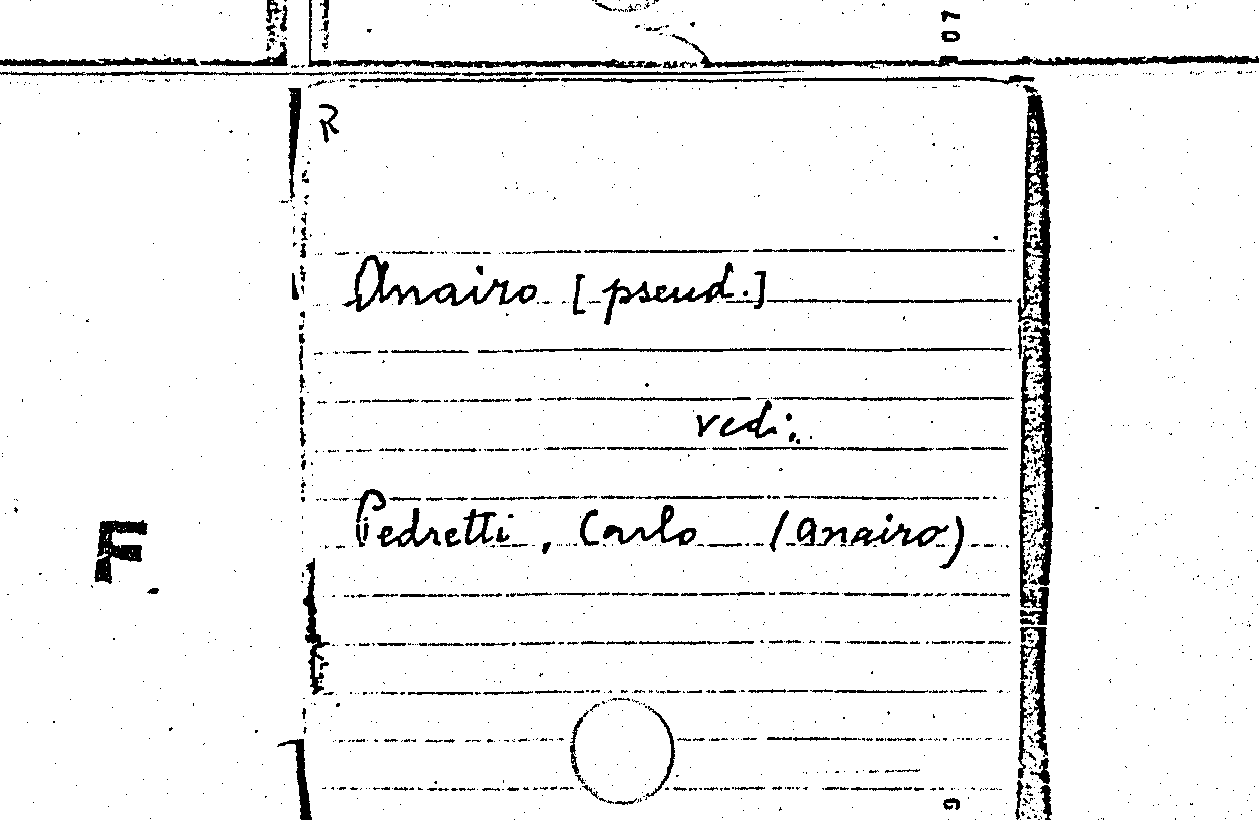 07
R
Anairo [pseud.]
vedi:
Pedretti, Carlo (Anairo)
F
9